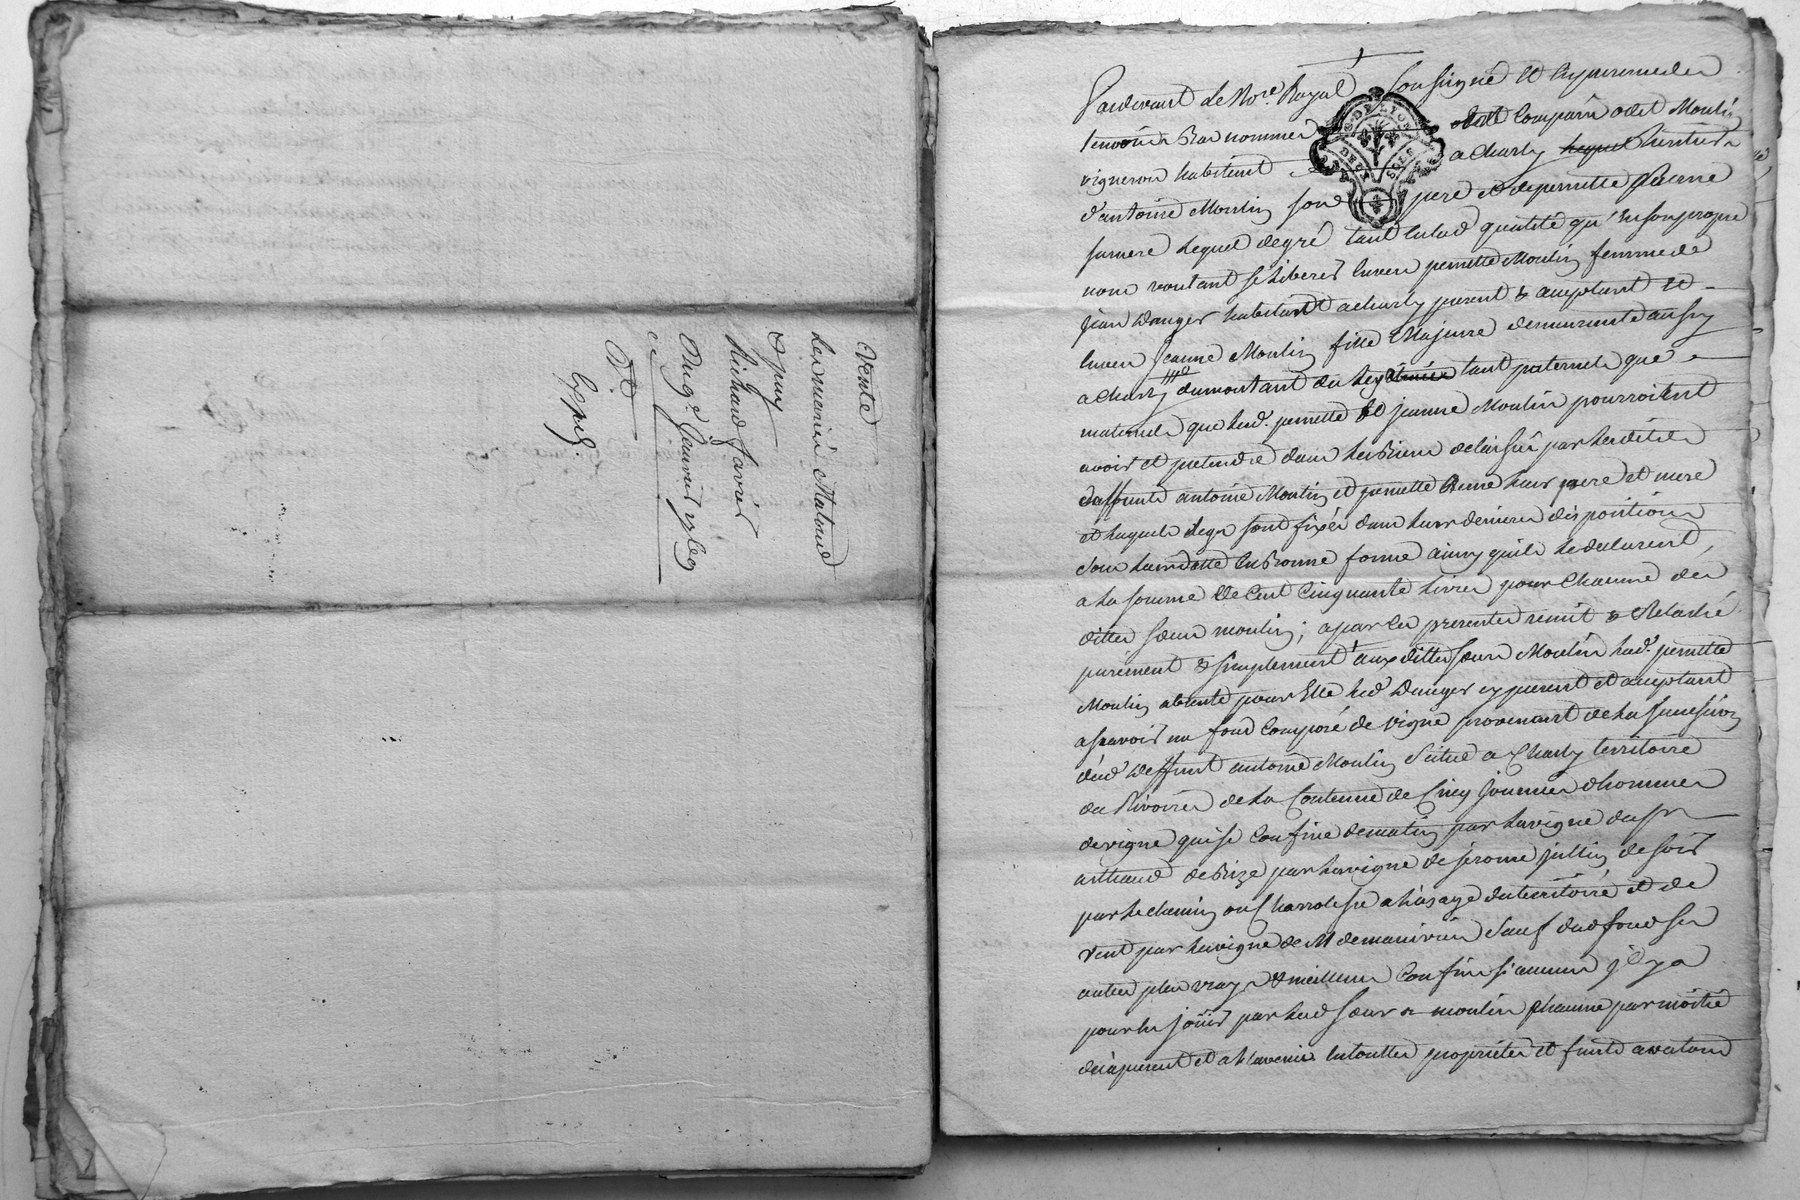 Vente
Les mariés Mataud
a puy
Richard favier
Du 9e Janvier
Expié.
Pardevant le No.re Royal soussigné et en presence des
temoins Bas nommés comparu odet Moulin
G. DE LYON
DEUX SOLS
vigneron habitant a Charly lequel heritier
d'antoine Moulin son pere et de pernette
sa mere lequel de gré tant en lad qualité qu'en son propre
nom voulant se liberer envers pernette Moulin femme de
jean Danger habitant a charly present & acceptant et
envers jeanne Moulin fille Majeure demeurante aussy
a charly du montant du legitime tant paternels que
maternels que lesd. pernette et jeanne Moulin pourroient
avoir et pretendre dans les Biens delaissés par lesdits
deffunts antoine Moulin et pernette leurs pere et mere
et laquels legs sont fixés dans leurs dernieres dispositions
sous leur datte en Bonne forme ainsy qu'ils le declarent,
a la somme de Cent Cinquante livres pour Chacune des
dittes sœurs moulin; a par ces presentes remit & Relaché
purement & simplement aux dittes sœurs Moulin lad. pernette
Moulin absente pour Elle led Danger cy present et acceptant
a scavoir un fond Composé de vigne provenant de la succession
dud deffunt antoine Moulin Situé a Charly territoire
du Rivoire de la Contenue de Cinq Journées d'hommes
de vigne qui se Confine de matin par la vigne du sr
arthaud de Bize par la vigne de jerome jullin de soir
par le chemin ou Charroliere a l'usage du territoire et de
vent par la vigne de M demanivieu Sauf dud fond ses
autres plus vrays & meilleurs Confins si aucuns il y a
pour en joüir par lesd sœurs moulin chacune par moitié
des a present et a l'avenir en toutte proprieté et fruits avalans